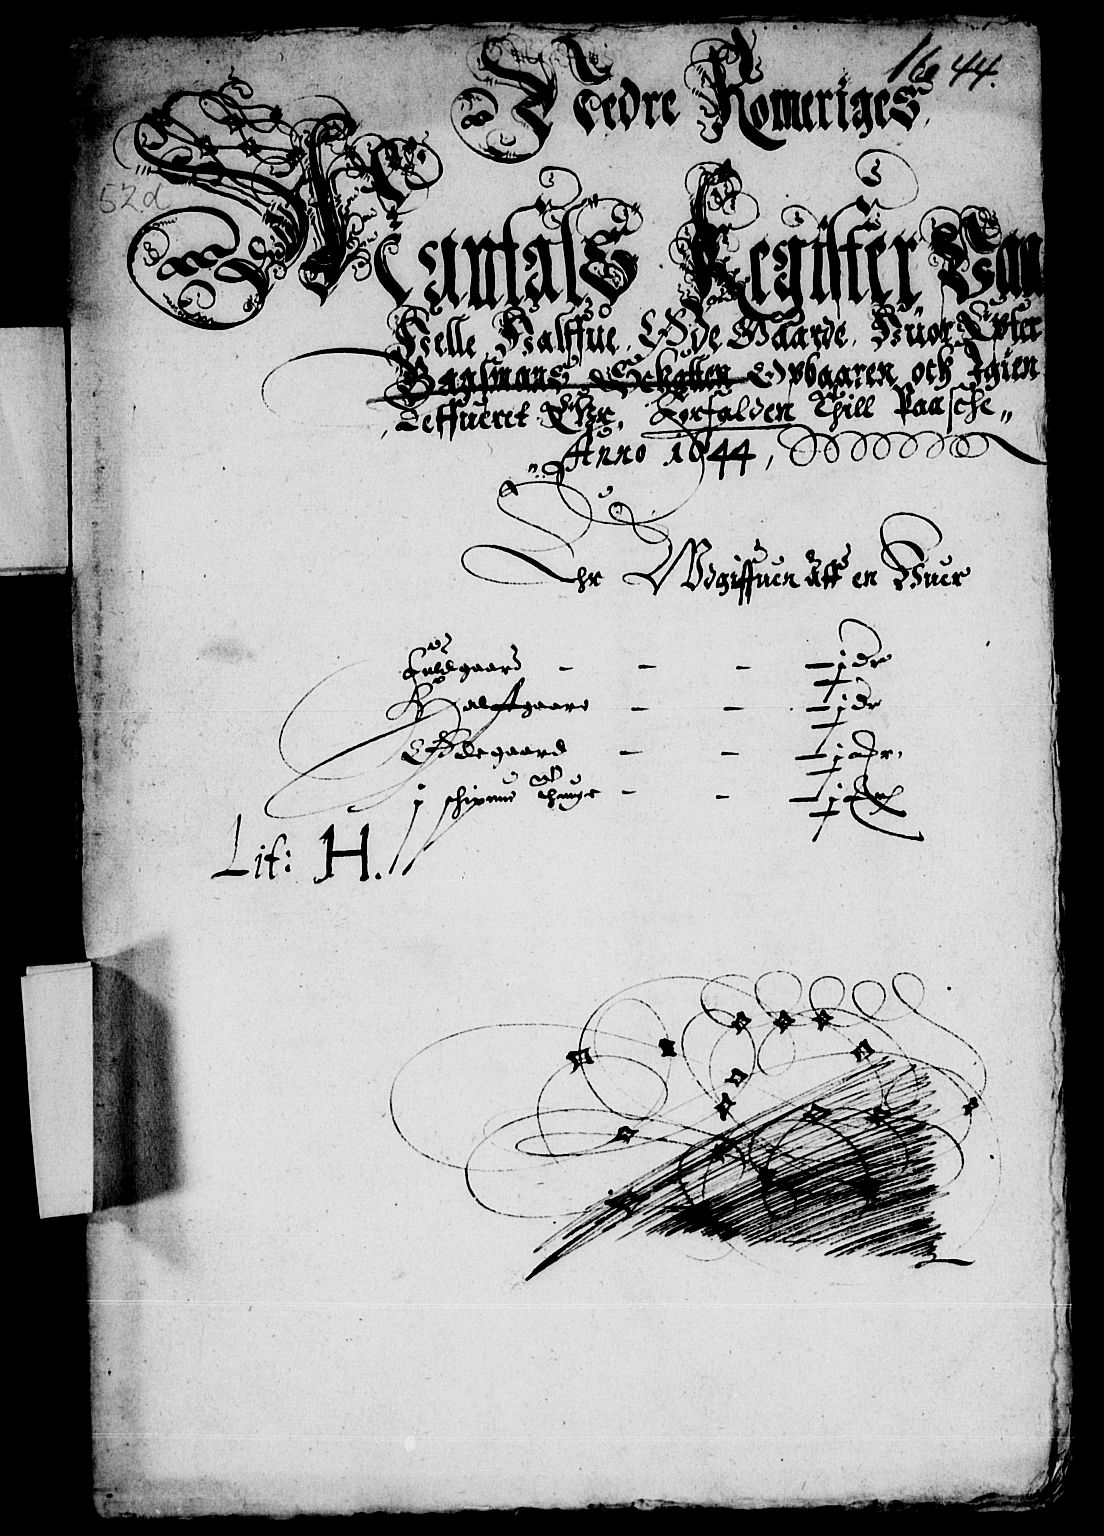 1644.
Nedre Romeriges
52d
Mantals Register Paa
Helle Halffue, Øde Gaarde, Huor Epter
Bagsmans Schatten Opbaaren och Igien
Leffueret Ehr, Forfalden Thill Paasche
Anno 1644,
Ehr Udgiffuen aff en Huer
Fuldgaard - - - - 1 dr
Halffgaard - - - 1 dr
Ødegaard - - - 1 dr.
j schipund Thunge - - -
Lit: H.